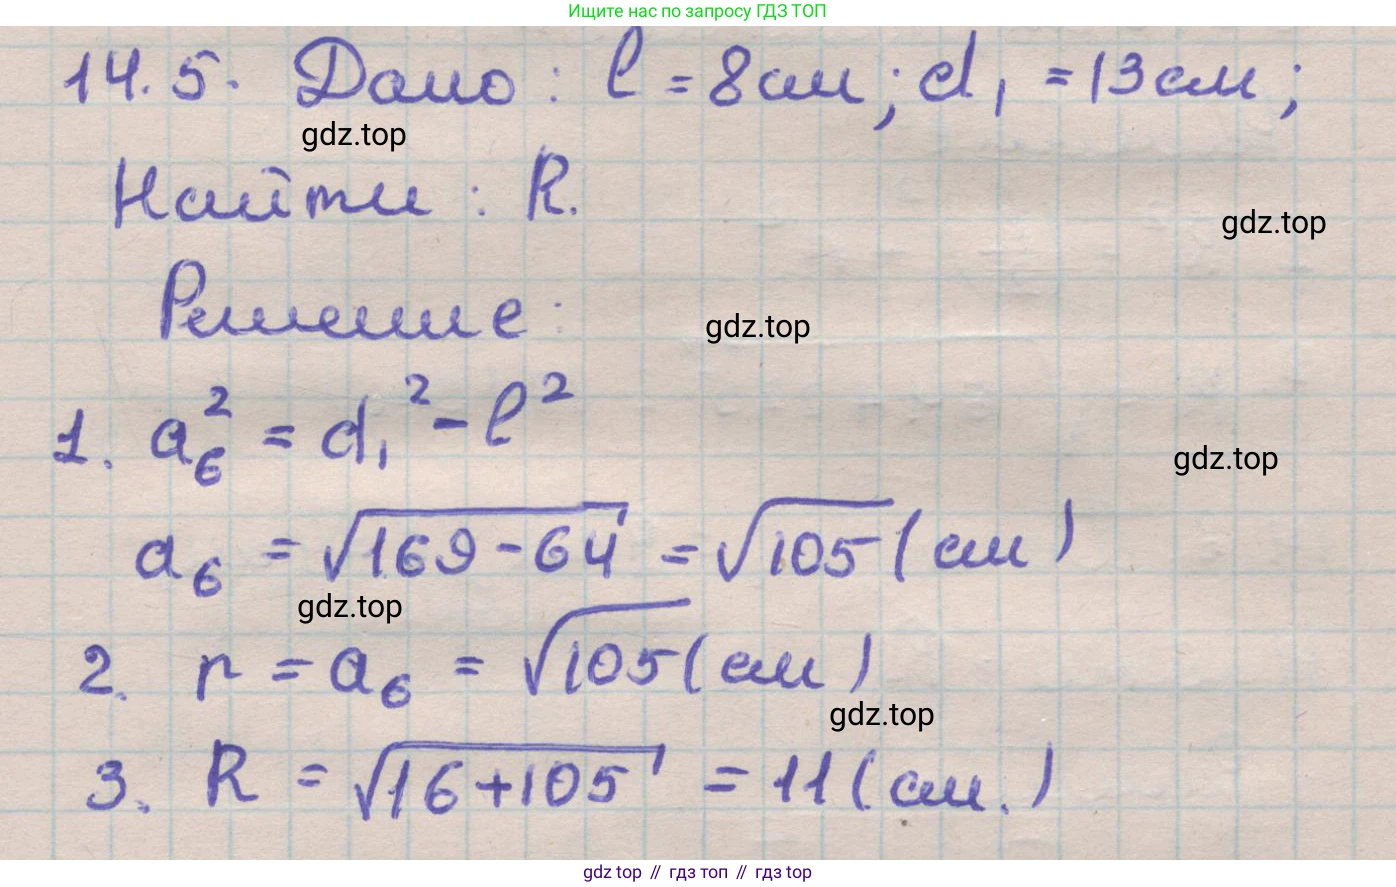 Ищите нас по запросу ГДЗ ТОП
14.5. Дано: l = 8см; d₁ = 13см;
gdz.top
Найти: R.
gdz.top
Решение:
gdz.top
1. a₆² = d₁² - l²
gdz.top
a₆ = √169-64 = √105 (см)
gdz.top
2. r = a₆ = √105 (см)
gdz.top
3. R = √16+105 = 11 (см.)
gdz top // гдз топ // гдз top